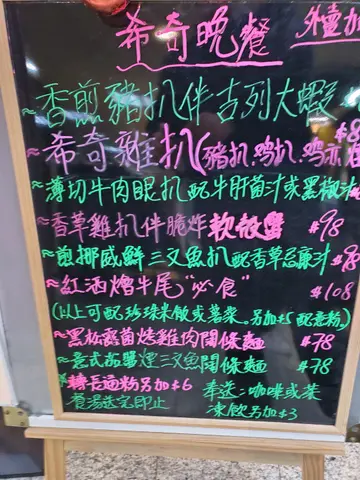 希奇晚餐 外賣加
~香煎豬扒伴吉列大蝦
~希奇雜扒(豬扒、鸡扒、鸡亦 $8
~薄切牛肉眼扒配牛肝菌汁或黑椒汁
~香草雞扒伴脆炸軟殼蟹 $98
~煎挪威鮮三文魚扒配香草忌廉汁 $98
~紅酒燴牛尾"必食" $108
(以上可配珍珠米飯或薯菜。另加+5配意粉。)
~黑松露菌烤雞肉闊條麵 $78
~意式 煙三文魚闊條麵 $78
轉長通粉另加+6 奉送：咖啡或茶
餐湯送完即止 凍飲另加+3